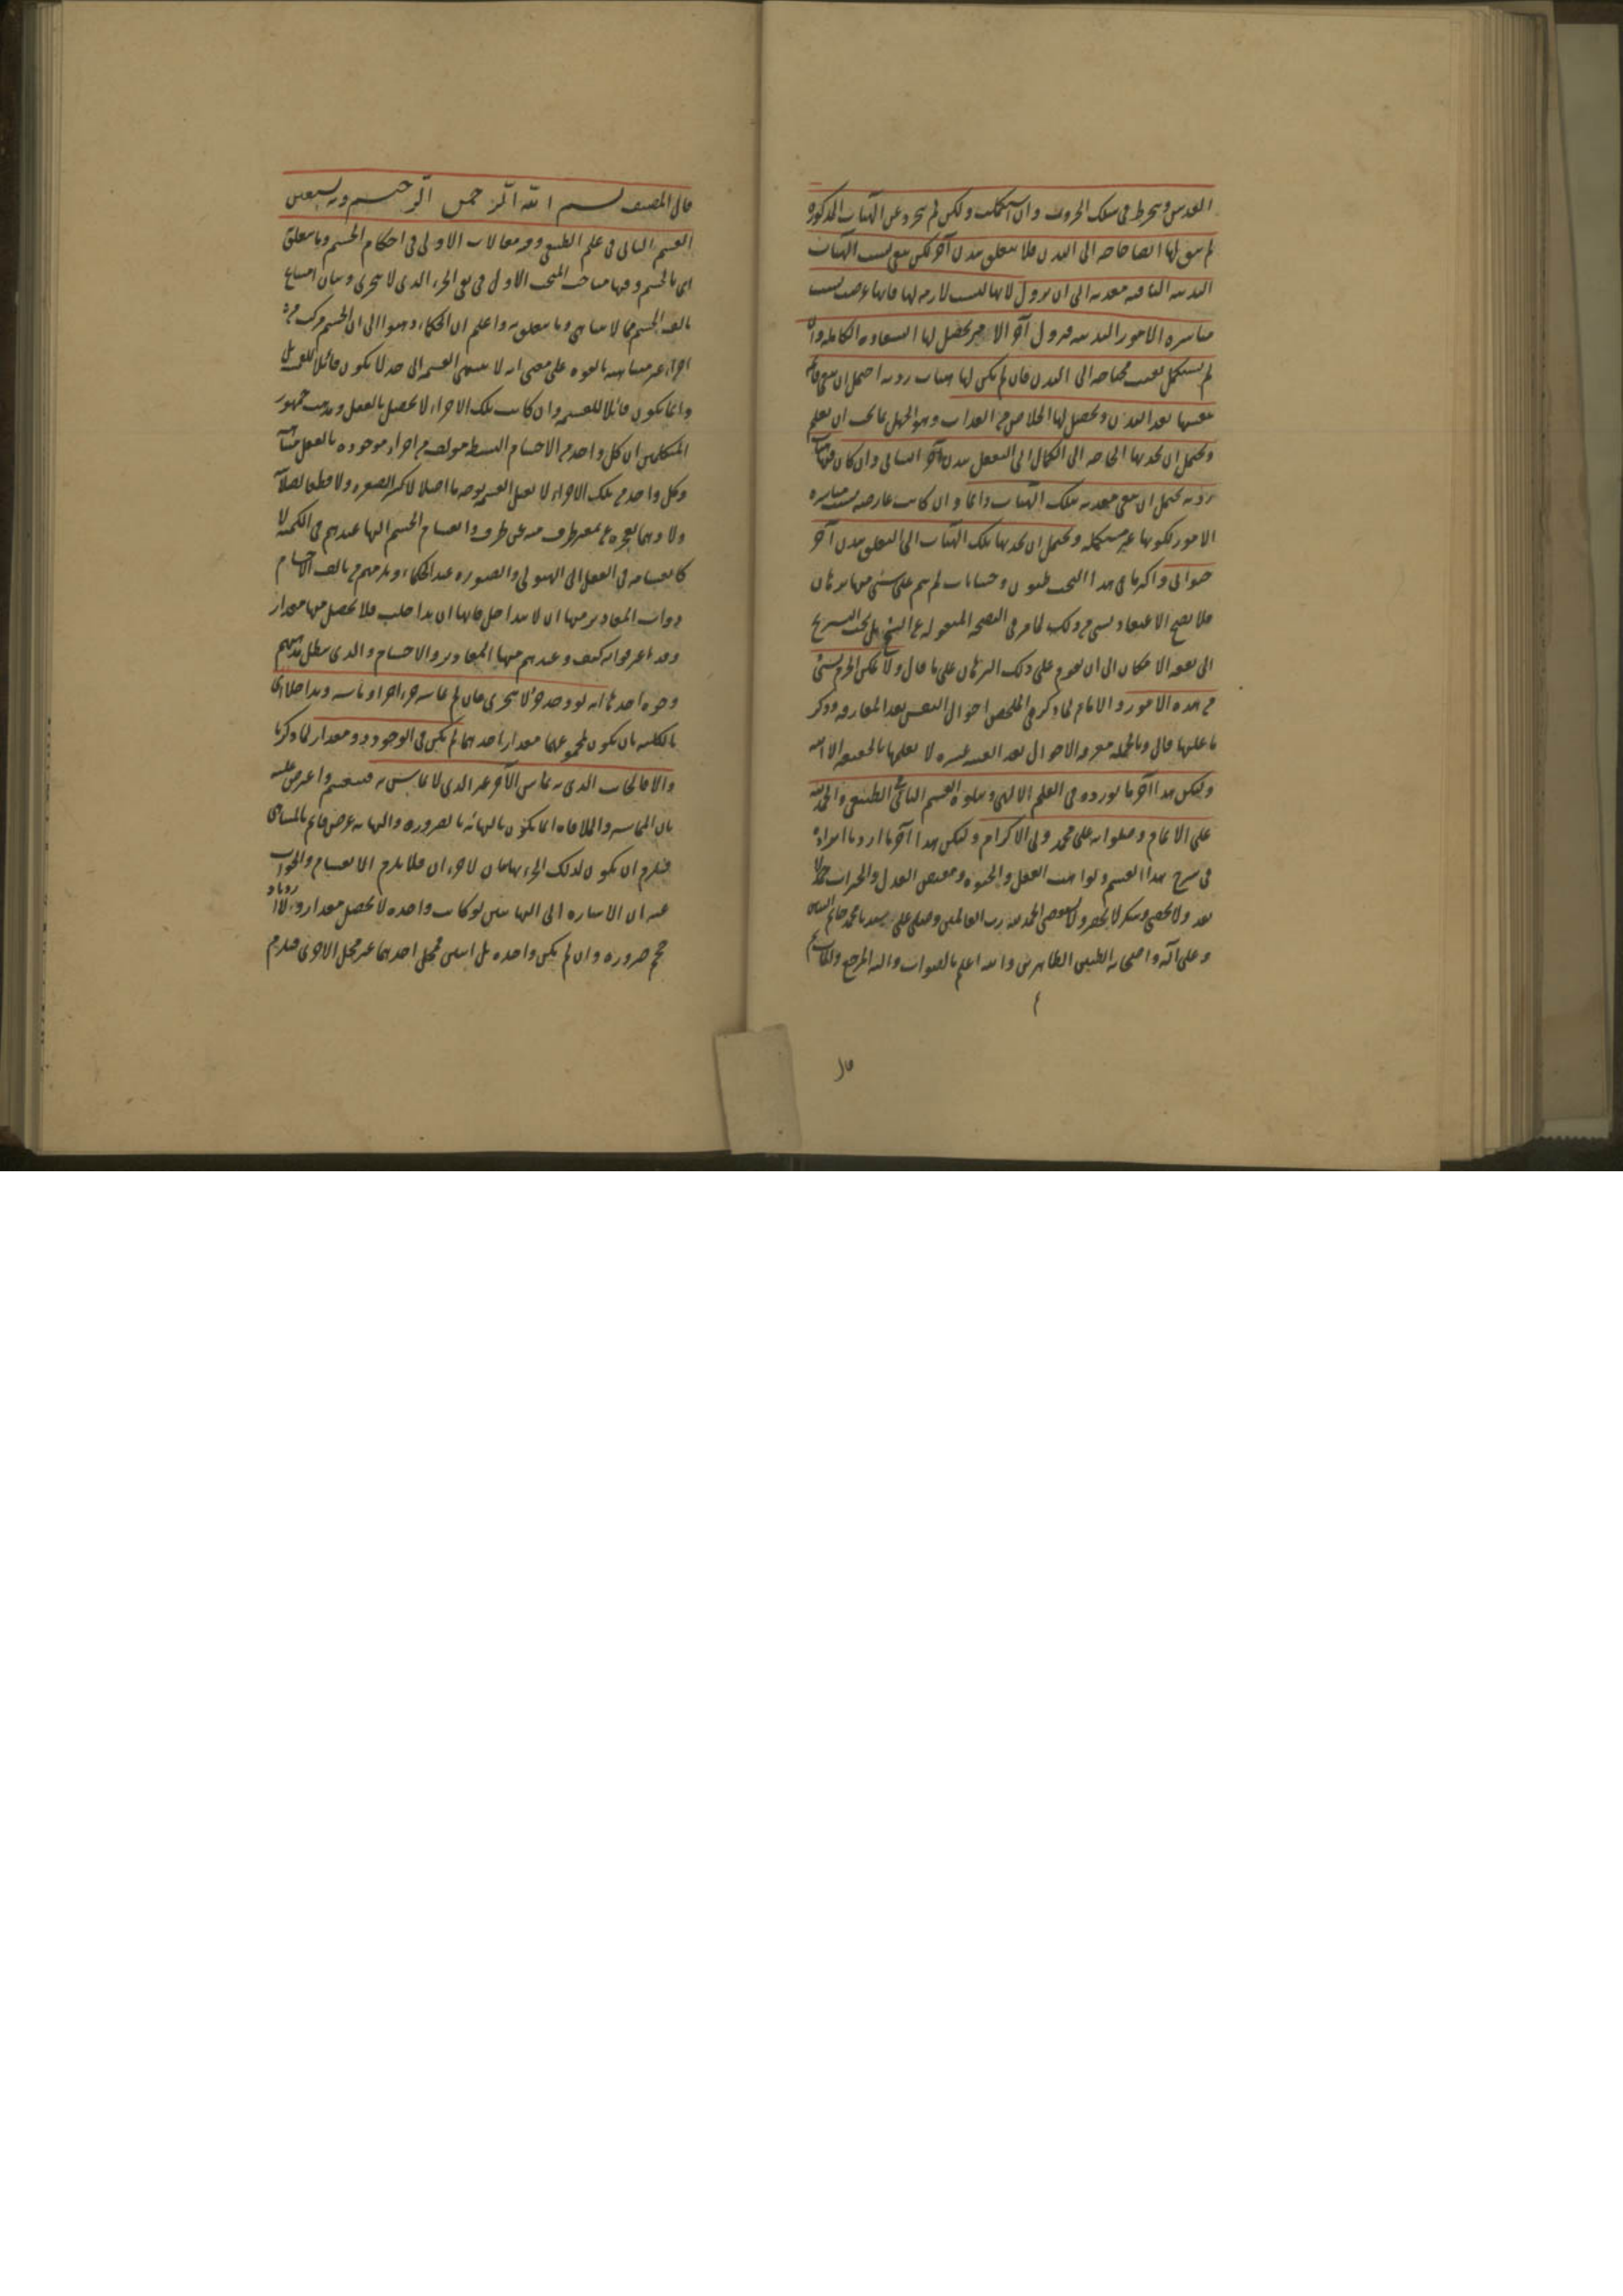 القدس وينخرط في سلك الجبروت وان استكملت ولكن لم تتجرد عن الهيئات المذكورة
لم يبق لها ايضا حاجة الى البدن فلا يتعلق ببدن آخر لكن يبقى بسبب الهيئات
البدنية الباقية معذبة الى ان يزول لانها ليست لازمة لها فانها عرضت بسبب
مباشرة الامور البدنية فيزول آخر الامر ويحصل لها السعادة الكاملة وان
لم يستكمل بقيت محتاجة الى البدن فان لم يكن لها هيئات ردية احتمل ان يبقى قائمة
بنفسها بعد البدن ويحصل لها الخلاص من العذاب وهو الجهل بما يجب ان يعلم
ويحتمل ان يجذبها الحاجة الى الكمال الى التعلق ببدن آخر انساني وان كان فيها هيئات
ردية يحتمل ان يبقى معذبة بتلك الهيئات دائما وان كانت عارضة بسبب مباشرة
الامور لكونها غير مستكملة ويحتمل ان يجذبها تلك الهيئات الى التعلق ببدن آخر
حيواني واكثر ما في هذا البحث ظنون وحسبانات لم يتم على شيء منها برهان
فلا يصح الاعتقاد بشيء من ذلك لما مر في النصيحة المنقولة عن الشيخ بل يجب التسريح
الى بقعة الامكان الى ان يقوم على ذلك البرهان على ما قال ولا يمكن الجزم بشيء
من هذه الامور والامام لما ذكر في الملخص احوال النفس بعد المفارقة وذكر
ما عليها قال وبالجملة معرفة الاحوال بعد الغيبة عسرة لا يعلمها بالحقيقة الا الله
وليكن هذا آخر ما نورده في العلم الالهي ويتلوه القسم الثاني في الطبيعي والحمد لله
على الانعام وصلواته على محمد ولي الاكرام وليكن هذا آخر ما اردنا ايراده
في شرح هذا القسم ولواهب العقل والحيوة ومفيض العدل والخيرات حمدا لا
يعد ولا يحصى وشكر لا يحصر ولا يستقصى الحمد لله رب العالمين وصلى على سيدنا محمد خاتم النبيين
وعلى آله واصحابه الطيبين الطاهرين والله اعلم بالصواب واليه المرجع والمآب
قال
قال المصنف بسم الله الرحمن الرحيم وبه نستعين
القسم الثاني في علم الطبيعي وفيه مقالات الاولى في احكام الجسم وما يتعلق
اي بالجسم وفيها مباحث المبحث الاول في نفي الجزء الذي لا يتجزى وبيان امتناع
تالف الجسم مما لا يتناهى وما يتعلق به واعلم ان الحكماء ذهبوا الى ان الجسم مركب من
اجزاء غير متناهية بالقوة على معنى انه لا ينتهي القسمة الى حد لا يكون قابلا للقسمة بل
دائما يكون قابلا للقسمة وان كانت تلك الاجزاء لا تحصل بالفعل ومذهب جمهور
المتكلمين ان كل واحد من الاجسام البسيطة مولف من اجزاء موجودة بالفعل متناهية
وكل واحد من تلك الاجزاء لا يقبل القسمة بوجه ما اصلا لا كسرا لصغره ولا قطعا لصلابته
ولا وهما لعجزه عن تمييز طرف منه عن طرف وانقسام الجسم اليها عندهم في الكمية لا
كانقسامه في العقل الى الهيولى والصورة عند الحكماء ويلزمهم من تالف الاجسام
ذوات المقادير منها ان لا يتداخل فانها ان تداخلت فلا يحصل منها مقدار
وقد اعترفوا به كيف وعندهم منها المقادير والاجسام والذي يبطل مذهبهم
وجوه احدها انه لو وجد جزء لا يتجزى فان لم يماسه جزء اجزاء او ماسه وتداخلا اي
بالكلية بان يكون مجموعهما مقدارا احدهما لم يكن في الوجود ذو مقدار لما ذكرنا
والا فالجانب الذي به يماس الآخر غير الذي لا يماس به فينقسم واعترض عليه
بان المماسة والملاقاة انما يكون بالنهاية بالضرورة والنهاية عرض قائم بالمتناهي
فيلزم ان يكون لذلك الجزء نهايتان لا جزءان فلا يلزم الانقسام والجواب
عنه ان الاشارة الى النهايتين لو كانت واحدة لا يحصل مقدار ولا ازدياد
حجم ضرورة وان لم يكن واحدة بل اثنين فمحل احدهما غير محل الاخرى فيلزم